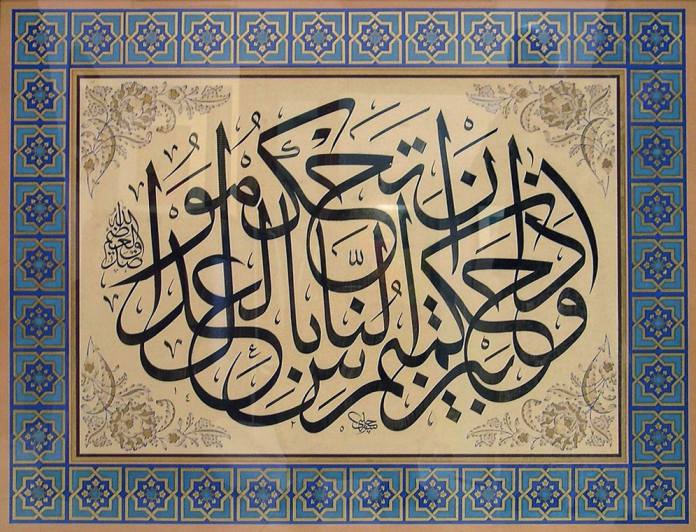 وإذا حكمتم بين الناس أن تحكموا بالعدل
صدق الله العظيم